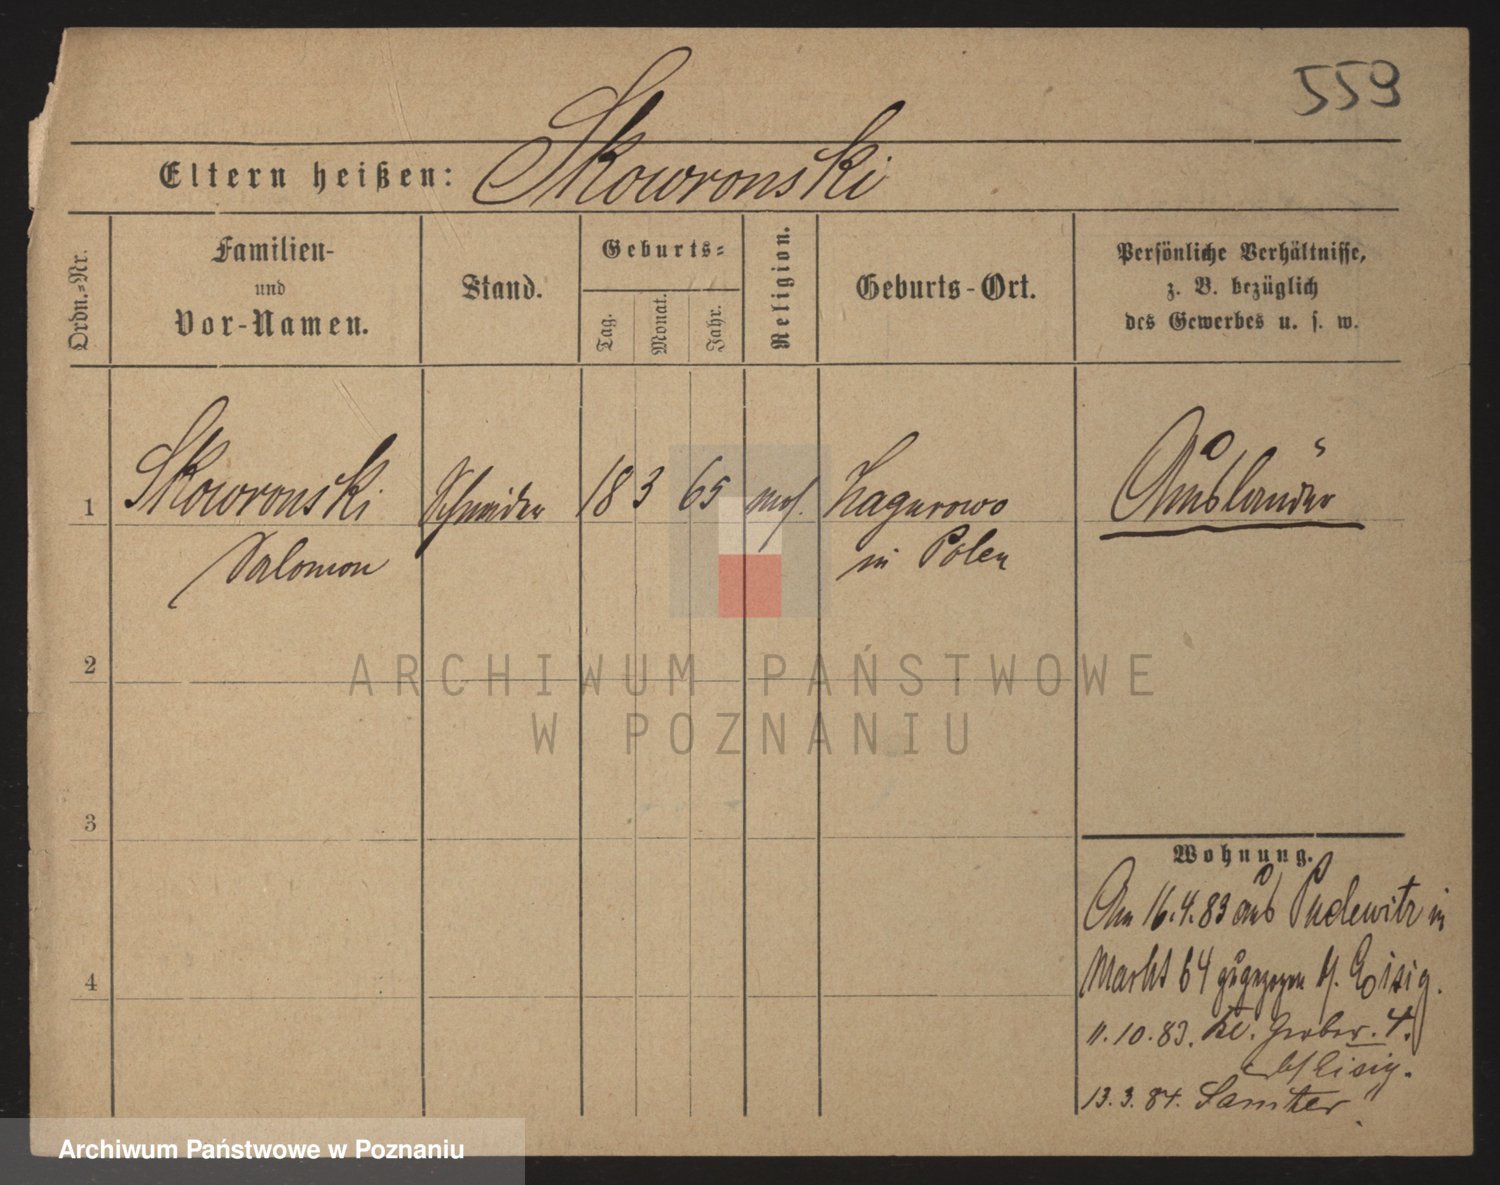 559
Eltern heißen: Skowronski
Ordn.-Nr.
Familien-
und
Vor-Namen.
Stand.
Geburts-
Tag.
Monat.
Jahr.
Religion.
Geburts-Ort.
Persönliche Verhältnisse,
z. B. bezüglich
des Gewerbes u. s. w.
1 Skowronski Schneider 18 3 65 mos. Zagurowo Ausländer
Salomon in Polen
2
3
4
Wohnung.
Am 16.4.83 aus Pudewitz in
Markt 64 zugezogen b/. Eisig.
11.10.83. kl. Gerber. 4.
b/ Eisig.
13.3.84. Samter
ARCHIWUM PAŃSTWOWE
W POZNANIU
Archiwum Państwowe w Poznaniu